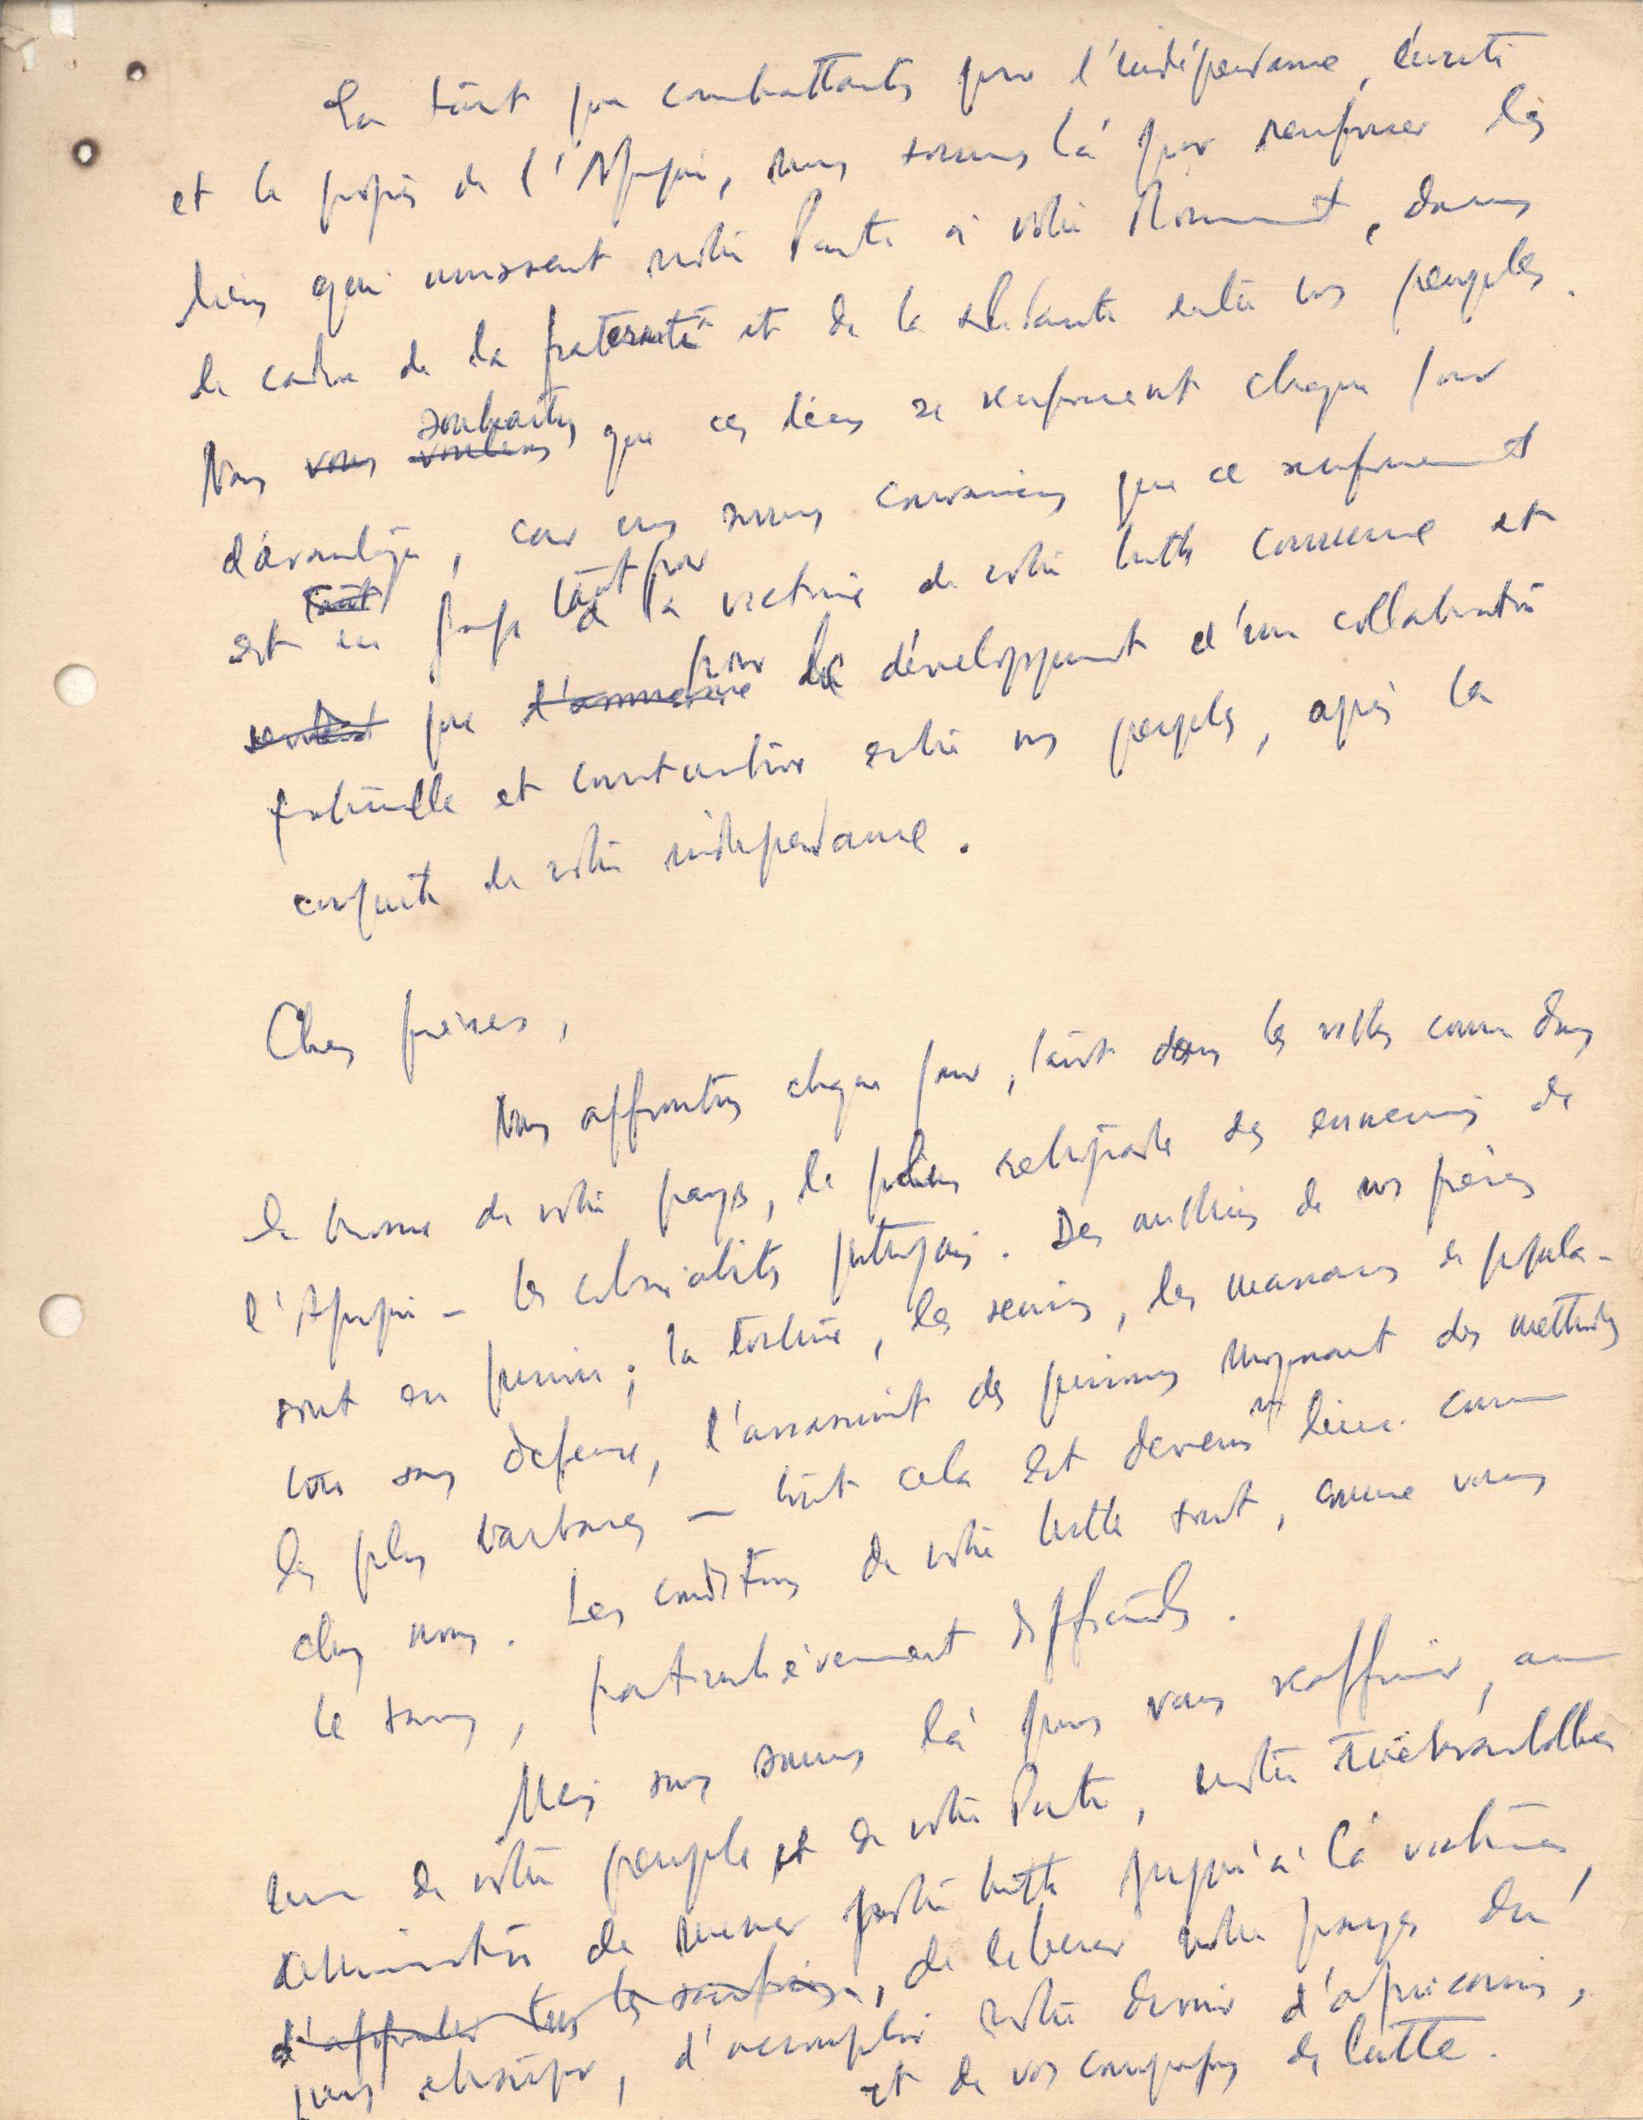 En tant que combattants pour l'indépendance, l'unité
et le progrès de l'Afrique, nous sommes là pour renforcer les
liens qui unissent notre Parti à votre Mouvement, dans
le cadre de la fraternité et de la solidarité entre nos peuples.
Nous vous voulons souhaitons que ces liens se renforcent chaque jour
d'avantage, car nous sommes convaincus que ce renforcement
est tant un gage tant pour la victoire de notre lutte commune et
que pour le développement d'une collaboration
fraternelle et constructive entre nos peuples, après la
conquête de notre indépendance.
Chers frères,
Nous affrontons chaque jour, tant dans les villes comme dans
la brousse de notre pays, le plus rétrograde des ennemis de
l'Afrique — les colonialistes portugais. Des milliers de nos frères
sont en prison; la torture, les sévices, les massacres de popula-
tions sans défense, l'assassinat des prisonniers moyennant des methodes
les plus barbares — tout cela est devenu lieu commun
chez nous. Les conditions de notre lutte sont, comme vous
le savez, particulièrement difficiles.
Mais nous sommes là pour vous réaffirmer, au
nom de notre peuple et de notre Parti, notre inébranlable
détermination de mener notre lutte jusqu'à la victoire,
d'affronter tous les sacrifices, de liberer notre pays du
joug étranger, d'accomplir notre devoir d'africains,
et de vos compagnons de lutte.